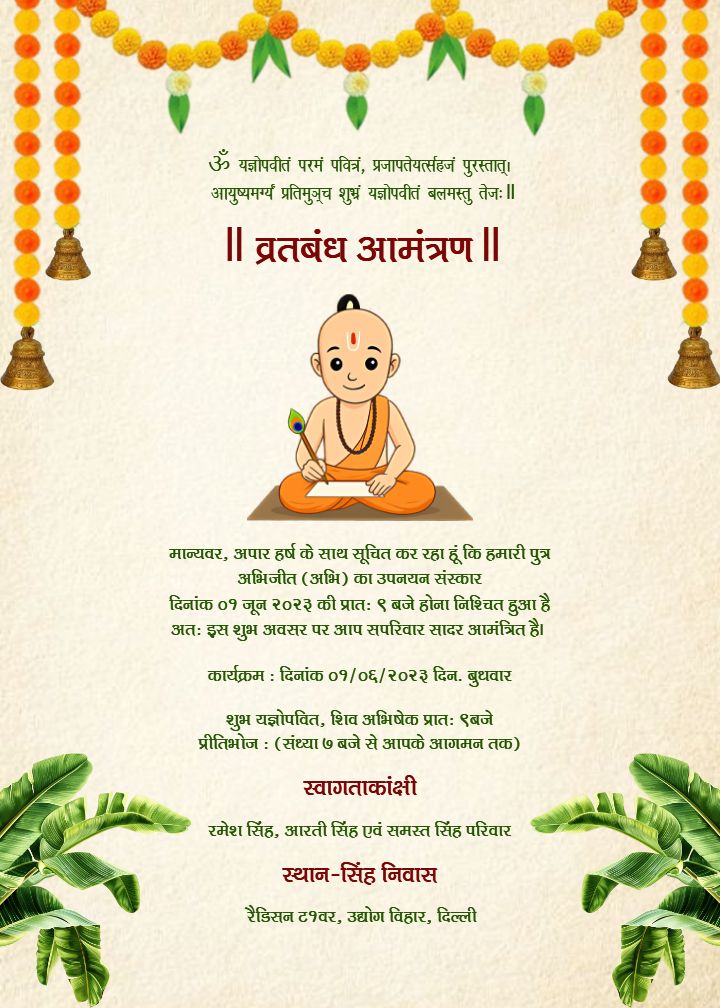 ॐ यज्ञोपवीतं परमं पवित्रं, प्रजापतेयर्त्सहजं पुरस्तात्।
आयुष्यमर्ग्यं प्रतिमुञ्च शुभ्रं यज्ञोपवीतं बलमस्तु तेजः॥
॥ व्रतबंध आमंत्रण ॥
मान्यवर, अपार हर्ष के साथ सूचित कर रहा हूं कि हमारी पुत्र
अभिजीत (अभि) का उपनयन संस्कार
दिनांक ०१ जून २०२३ की प्रातः ९ बजे होना निश्चित हुआ है
अतः इस शुभ अवसर पर आप सपरिवार सादर आमंत्रित है।
कार्यक्रम : दिनांक ०१/०६/२०२३ दिन. बुधवार
शुभ यज्ञोपवित, शिव अभिषेक प्रातः ९बजे
प्रीतिभोज : (संध्या ७ बजे से आपके आगमन तक)
स्वागताकांक्षी
रमेश सिंह, आरती सिंह एवं समस्त सिंह परिवार
स्थान-सिंह निवास
रैडिसन ट१वर, उद्योग विहार, दिल्ली